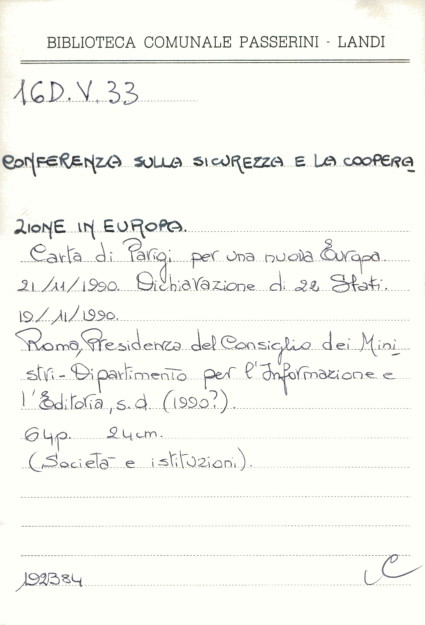 BIBLIOTECA COMUNALE PASSERINI - LANDI
16D.V.33
CONFERENZA SULLA SICUREZZA E LA COOPERA
ZIONE IN EUROPA.
Carta di Parigi per una nuova Europa.
21/11/1990. Dichiarazione di 22 Stati.
19/11/1990.
Roma, Presidenza del Consiglio dei Mini_
stri - Dipartimento per l'Informazione e
l'Editoria, s.d. (1990?).
64p. 24cm.
(Società e istituzioni).
192384